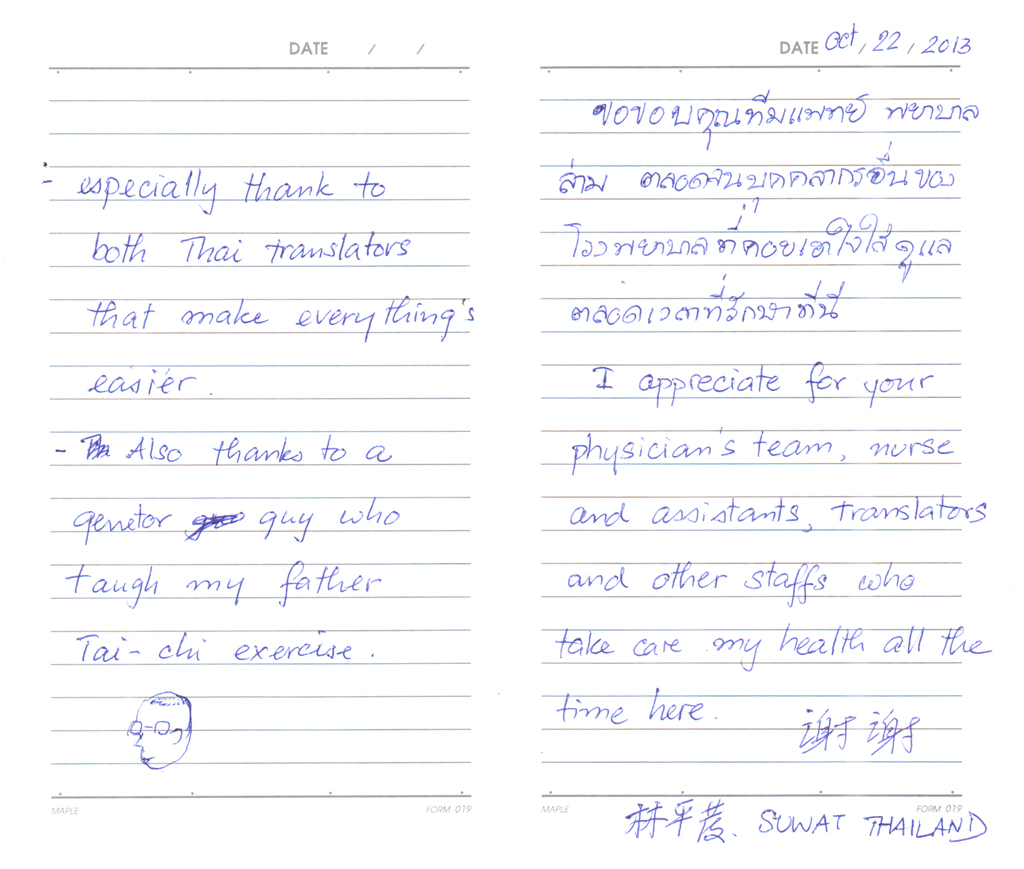 DATE / /
- especially thank to
both Thai translators
that make everything's
easier.
- Also thanks to a
genetor guy who
taugh my father
Tai-chi exercise.
MAPLE FORM 019
DATE Oct, 22, 2013
ขอขอบคุณทีมแพทย์ พยาบาล
ล่าม ตลอดจนบุคคลากรอื่นของ
โรงพยาบาลที่คอยเอาใจใส่ดูแล
ตลอดเวลาที่รักษาที่นี่
I appreciate for your
physician's team, nurse
and assistants, translators
and other staffs who
take care my health all the
time here. 谢谢
MAPLE FORM 019
林平发. SUWAT THAILAND